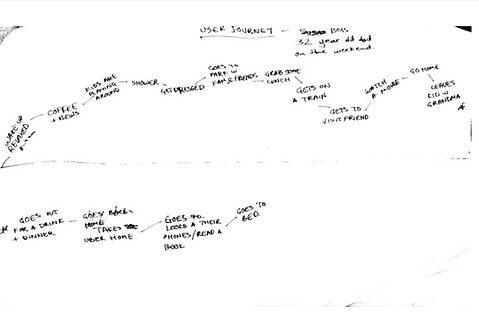 USER JOURNEY — BOB
32 year old dad
on the weekend.
WAKE UP
RELAXED
COFFEE
+ NEWS
KIDS ARE
PLAYING
AROUND
SHOWER
GET DRESSED
GOES TO
PARK W
FAM & FRIENDS
GRAB SOME
LUNCH
GETS ON
A TRAIN
GETS TO
VISIT FRIEND
WATCH
A MOVIE
GO HOME
LEAVES
KID W
GRANDMA
GOES OUT
FOR A DRINK
+ DINNER
GOES BACK
HOME
TAKES
UBER HOME
GOES TO
LOOKS A THEIR
PHONES/READ A
BOOK
GOES TO
BED.